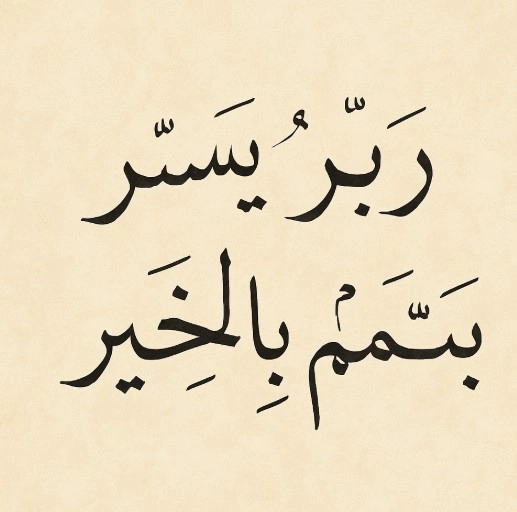 رَبّر يَسّر
بَبّمَمْ بِالخَِير